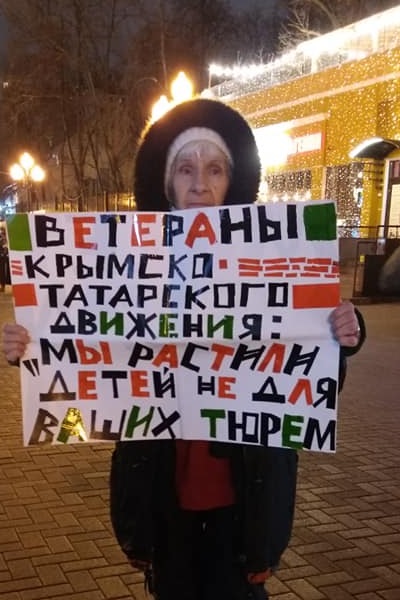 ВЕТЕРАНЫ
КРЫМСКО-
ТАТАРСКОГО
ДВИЖЕНИЯ:
"МЫ РАСТИЛИ
ДЕТЕЙ НЕ ДЛЯ
ВАШИХ ТЮРЕМ